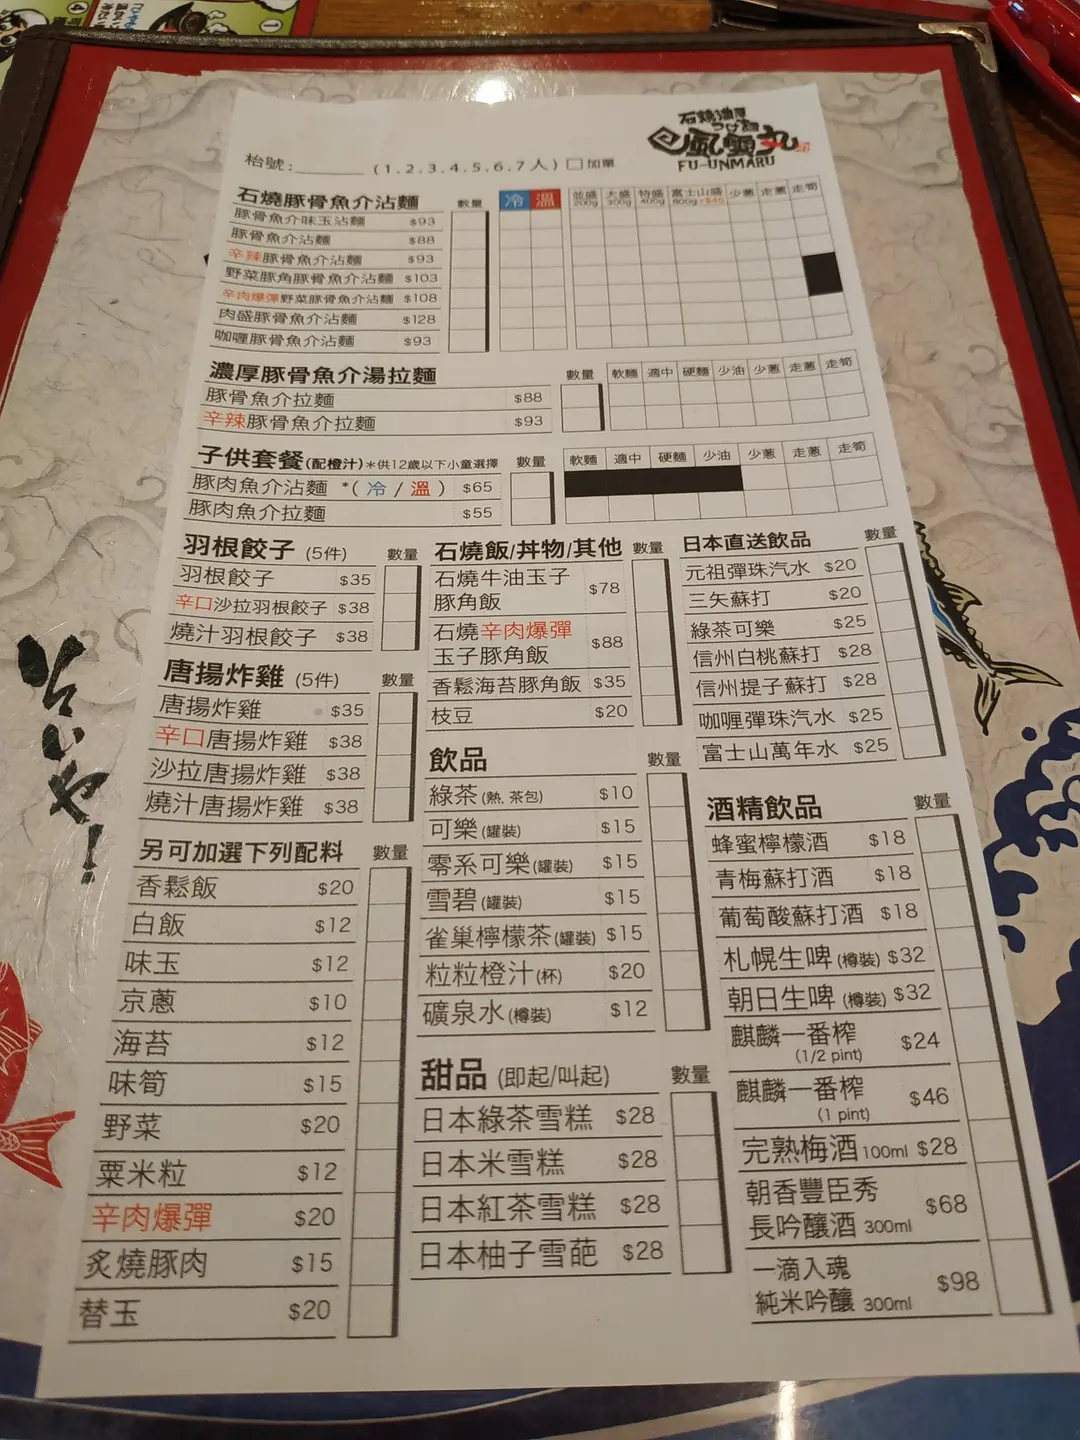 石燒濃厚
つけ麺
風雲丸
FU-UNMARU
枱號:______ (1.2.3.4.5.6.7人) □加單
石燒豚骨魚介沾麵 數量 冷 溫 並盛 200g 大盛 300g 特盛 400g 富士山盛 800g +$45 少蔥 走蔥 走筍
豚骨魚介味玉沾麵 $93
豚骨魚介沾麵 $88
辛辣豚骨魚介沾麵 $93
野菜豚角豚骨魚介沾麵 $103
辛肉爆彈野菜豚骨魚介沾麵 $108
肉盛豚骨魚介沾麵 $128
咖喱豚骨魚介沾麵 $93
濃厚豚骨魚介湯拉麵 數量 軟麵 適中 硬麵 少油 少蔥 走蔥 走筍
豚骨魚介拉麵 $88
辛辣豚骨魚介拉麵 $93
子供套餐(配橙汁)*供12歲以下小童選擇 數量 軟麵 適中 硬麵 少油 少蔥 走蔥 走筍
豚肉魚介沾麵 *(冷/溫) $65
豚肉魚介拉麵 $55
羽根餃子 (5件) 數量
羽根餃子 $35
辛口沙拉羽根餃子 $38
燒汁羽根餃子 $38
唐揚炸雞 (5件) 數量
唐揚炸雞 $35
辛口唐揚炸雞 $38
沙拉唐揚炸雞 $38
燒汁唐揚炸雞 $38
另可加選下列配料 數量
香鬆飯 $20
白飯 $12
味玉 $12
京蔥 $10
海苔 $12
味筍 $15
野菜 $20
粟米粒 $12
辛肉爆彈 $20
炙燒豚肉 $15
替玉 $20
石燒飯/丼物/其他 數量
石燒牛油玉子
豚角飯 $78
石燒辛肉爆彈
玉子豚角飯 $88
香鬆海苔豚角飯 $35
枝豆 $20
飲品 數量
綠茶(熱,茶包) $10
可樂(罐裝) $15
零系可樂(罐裝) $15
雪碧(罐裝) $15
雀巢檸檬茶(罐裝) $15
粒粒橙汁(杯) $20
礦泉水(樽裝) $12
甜品 (即起/叫起) 數量
日本綠茶雪糕 $28
日本米雪糕 $28
日本紅茶雪糕 $28
日本柚子雪葩 $28
日本直送飲品 數量
元祖彈珠汽水 $20
三矢蘇打 $20
綠茶可樂 $25
信州白桃蘇打 $28
信州提子蘇打 $28
咖喱彈珠汽水 $25
富士山萬年水 $25
酒精飲品 數量
蜂蜜檸檬酒 $18
青梅蘇打酒 $18
葡萄酸蘇打酒 $18
札幌生啤(樽裝) $32
朝日生啤(樽裝) $32
麒麟一番榨
(1/2 pint) $24
麒麟一番榨
(1 pint) $46
完熟梅酒100ml $28
朝香豐臣秀
長吟釀酒 300ml $68
一滴入魂
純米吟釀 300ml $98